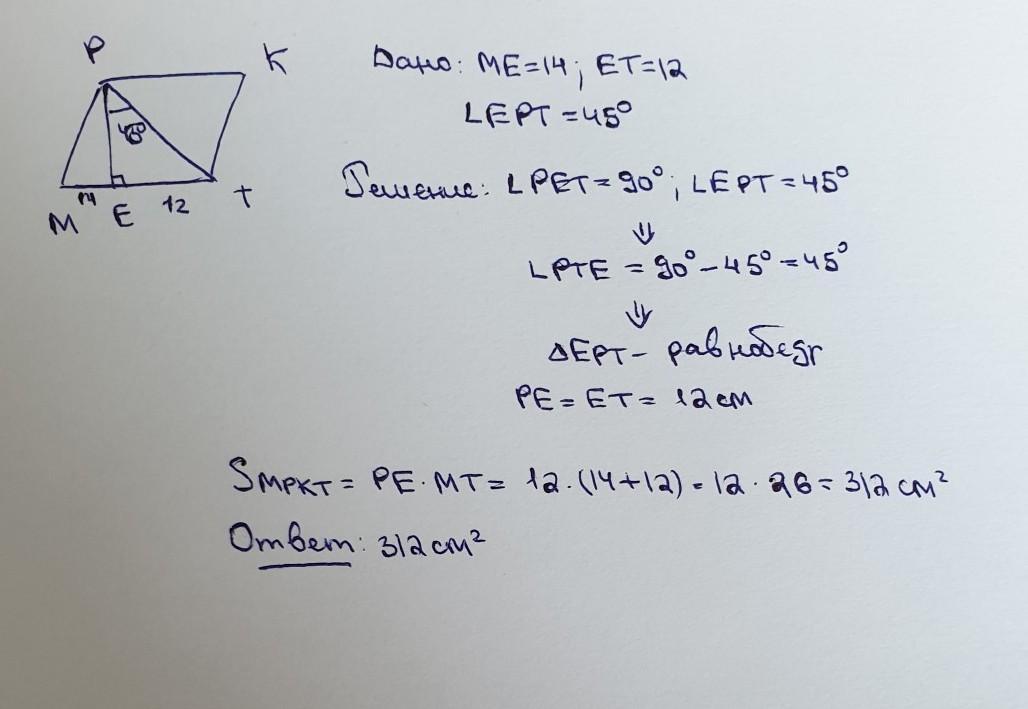 P
K
45°
M
14
E
12
T
Дано: ME=14; ET=12
∠EPT=45°
Решение: ∠PET=90°; ∠EPT=45°
⇓
∠PTE = 90°-45°=45°
⇓
ΔEPT- равнобедр
PE=ET=12см
SMPKT = PE·MT= 12·(14+12)=12·26=312 см²
Ответ: 312 см²